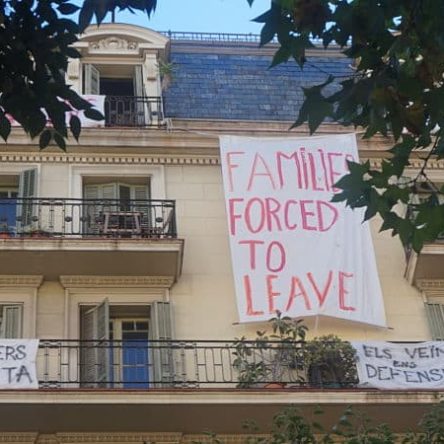 FAMILIES
FORCED
TO
LEAVE
ERS
TA
ELS VEÏN
ENS
DEFENS